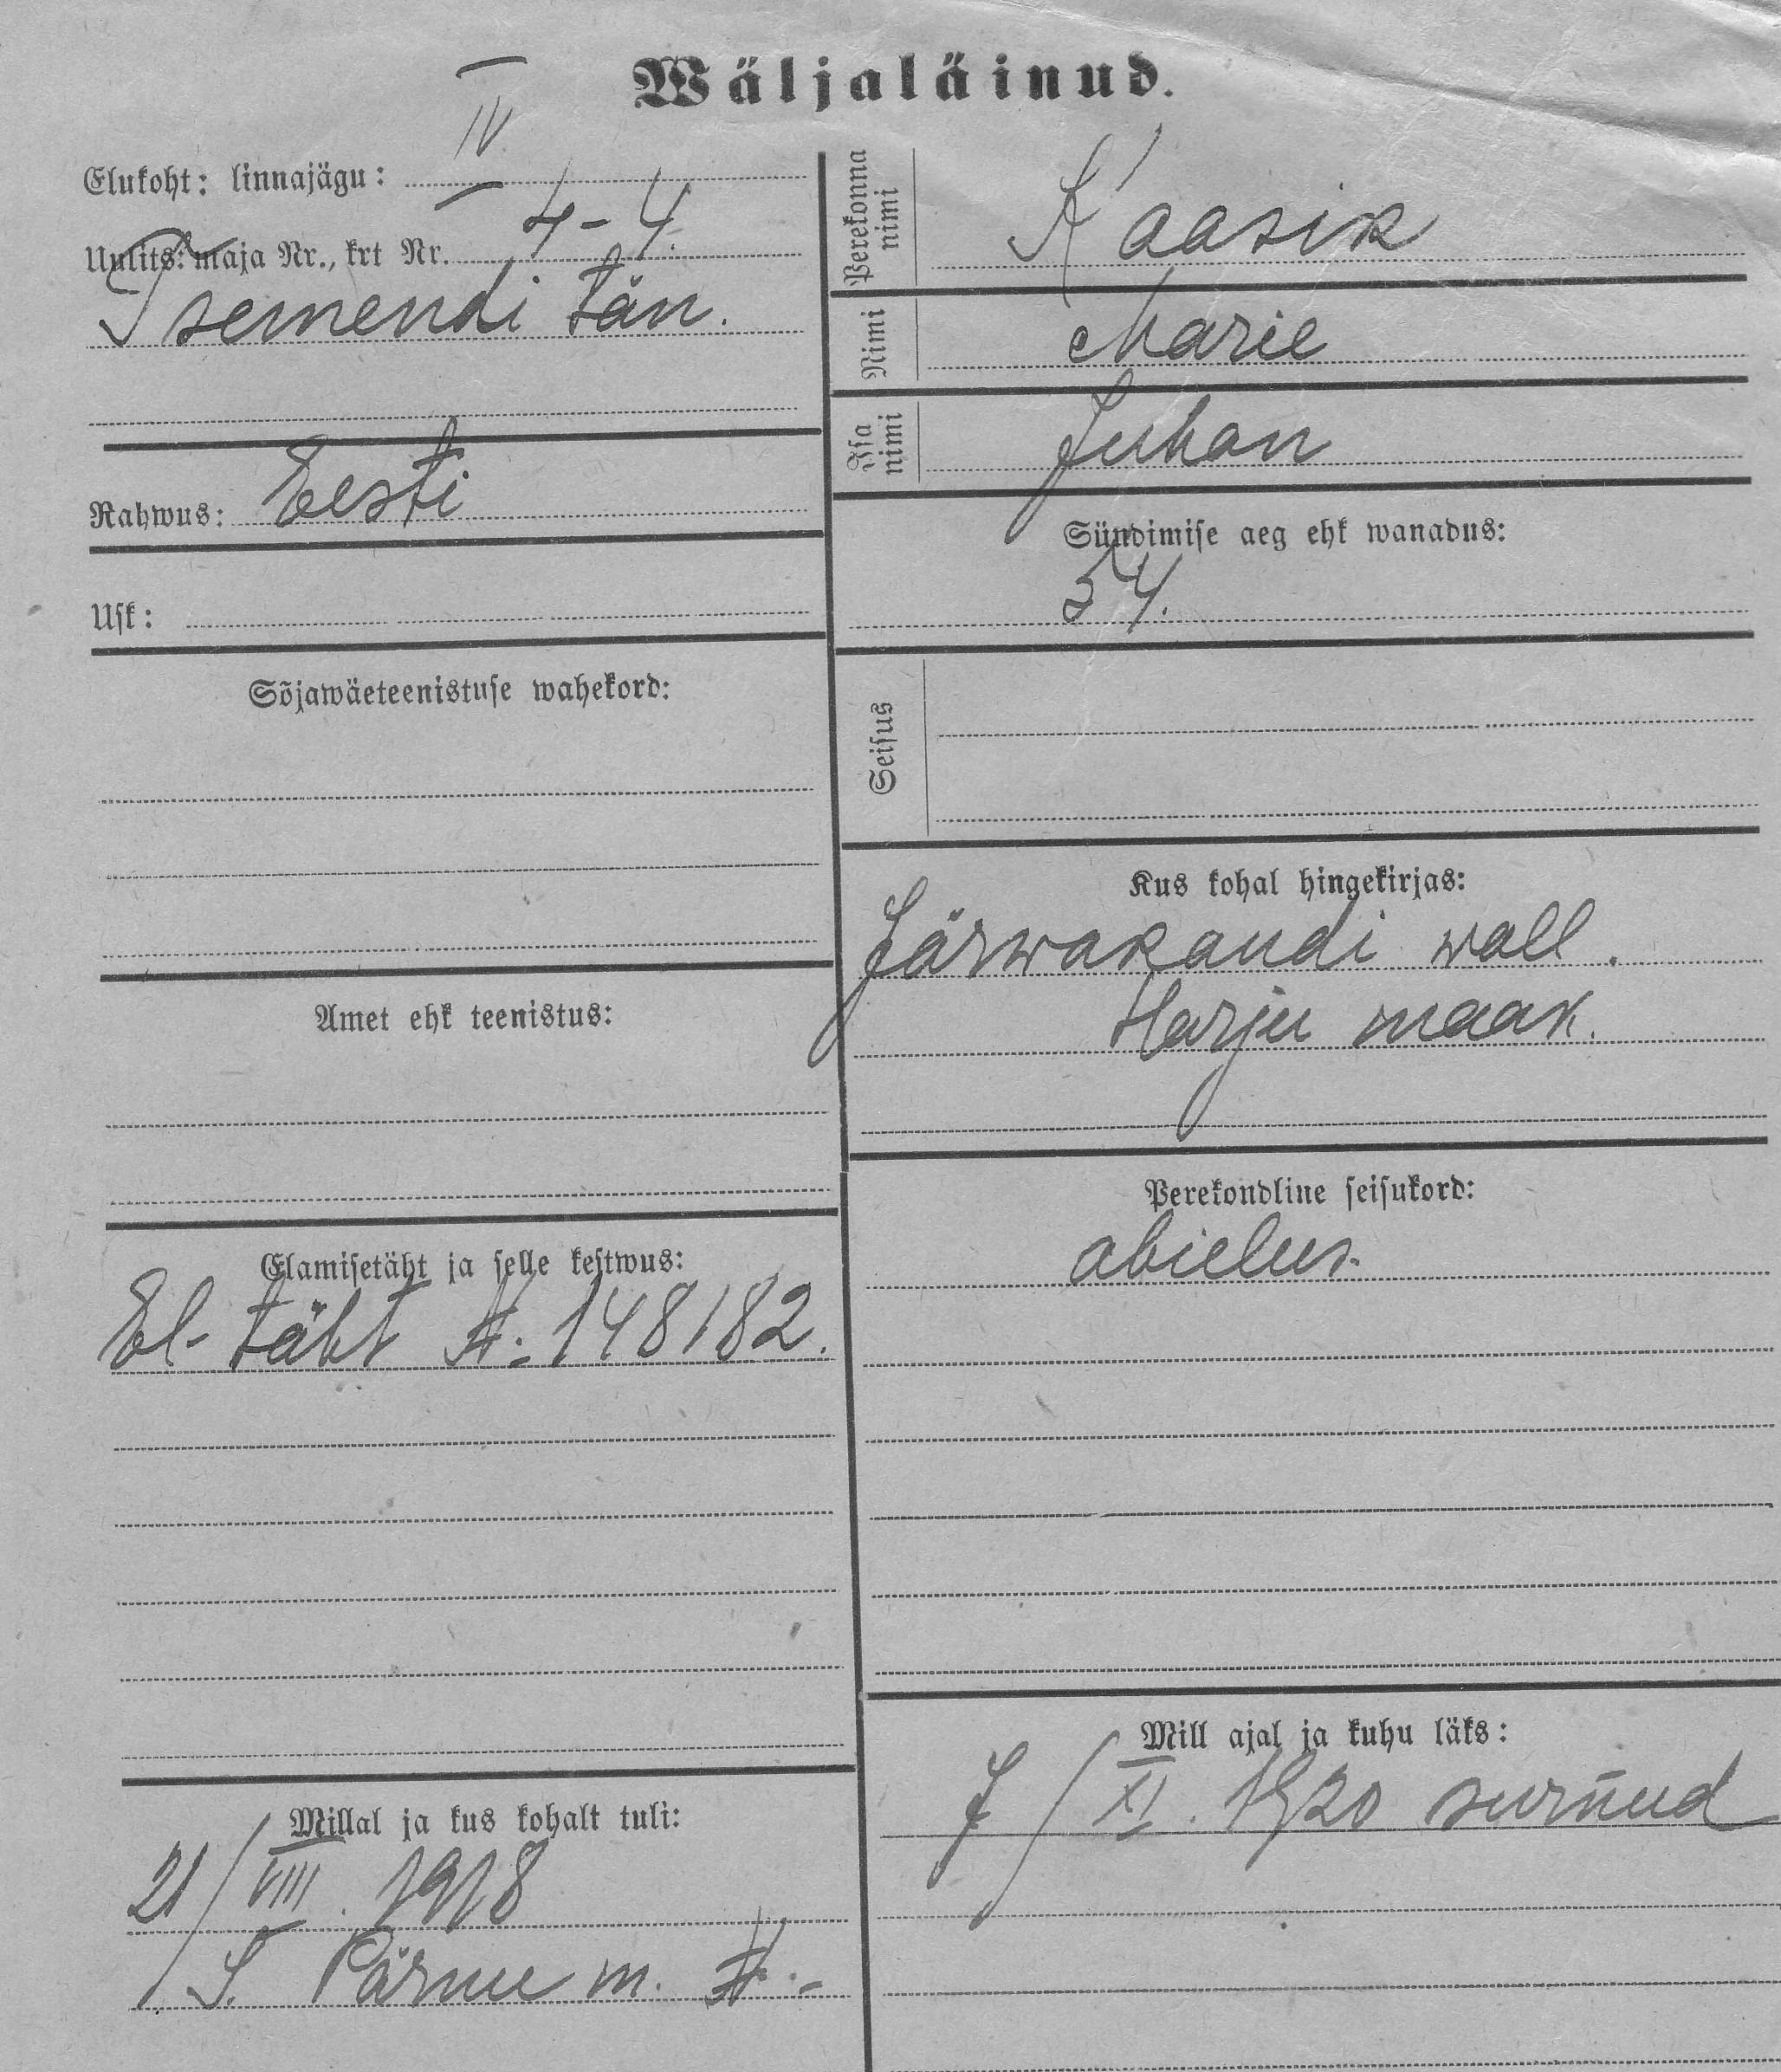 Wäljaläinud.
Elukoht: linnajägu: IV
Uulits: maja Nr., krt Nr. 4-4.
Tsemendi tän.
Rahwus: Eesti
Usk:
Sõjawäeteenistuse wahekord:
Amet ehk teenistus:
Elamisetäht ja selle kestwus:
El-täht №: 148182.
Millal ja kus kohalt tuli:
21/VIII. 1918
S. Pärnu m.
Perekonna nimi Kaasik
Nimi Marie
Isa nimi Juhan
Sündimise aeg ehk wanadus:
54.
Seisus
Kus kohal hingekirjas:
Järwakandi wall.
Harju maak.
Perekondline seisukord:
abielus.
Mill ajal ja kuhu läks:
/XI. 1920 surnud